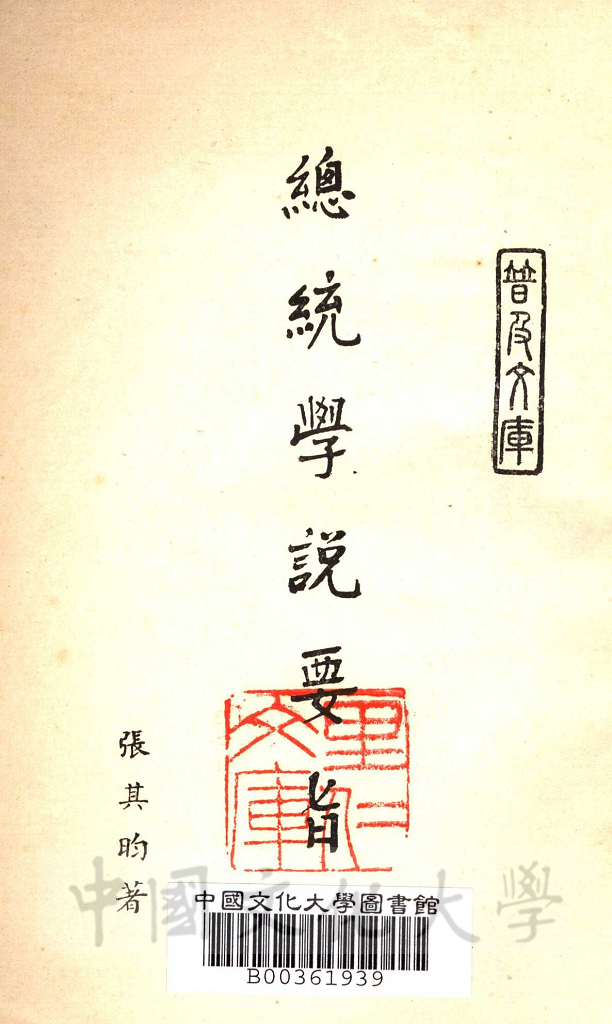 普及文庫
總統學說要旨
張其昀著
里仁文庫
中國文化大學
中國文化大學圖書館
B00361939